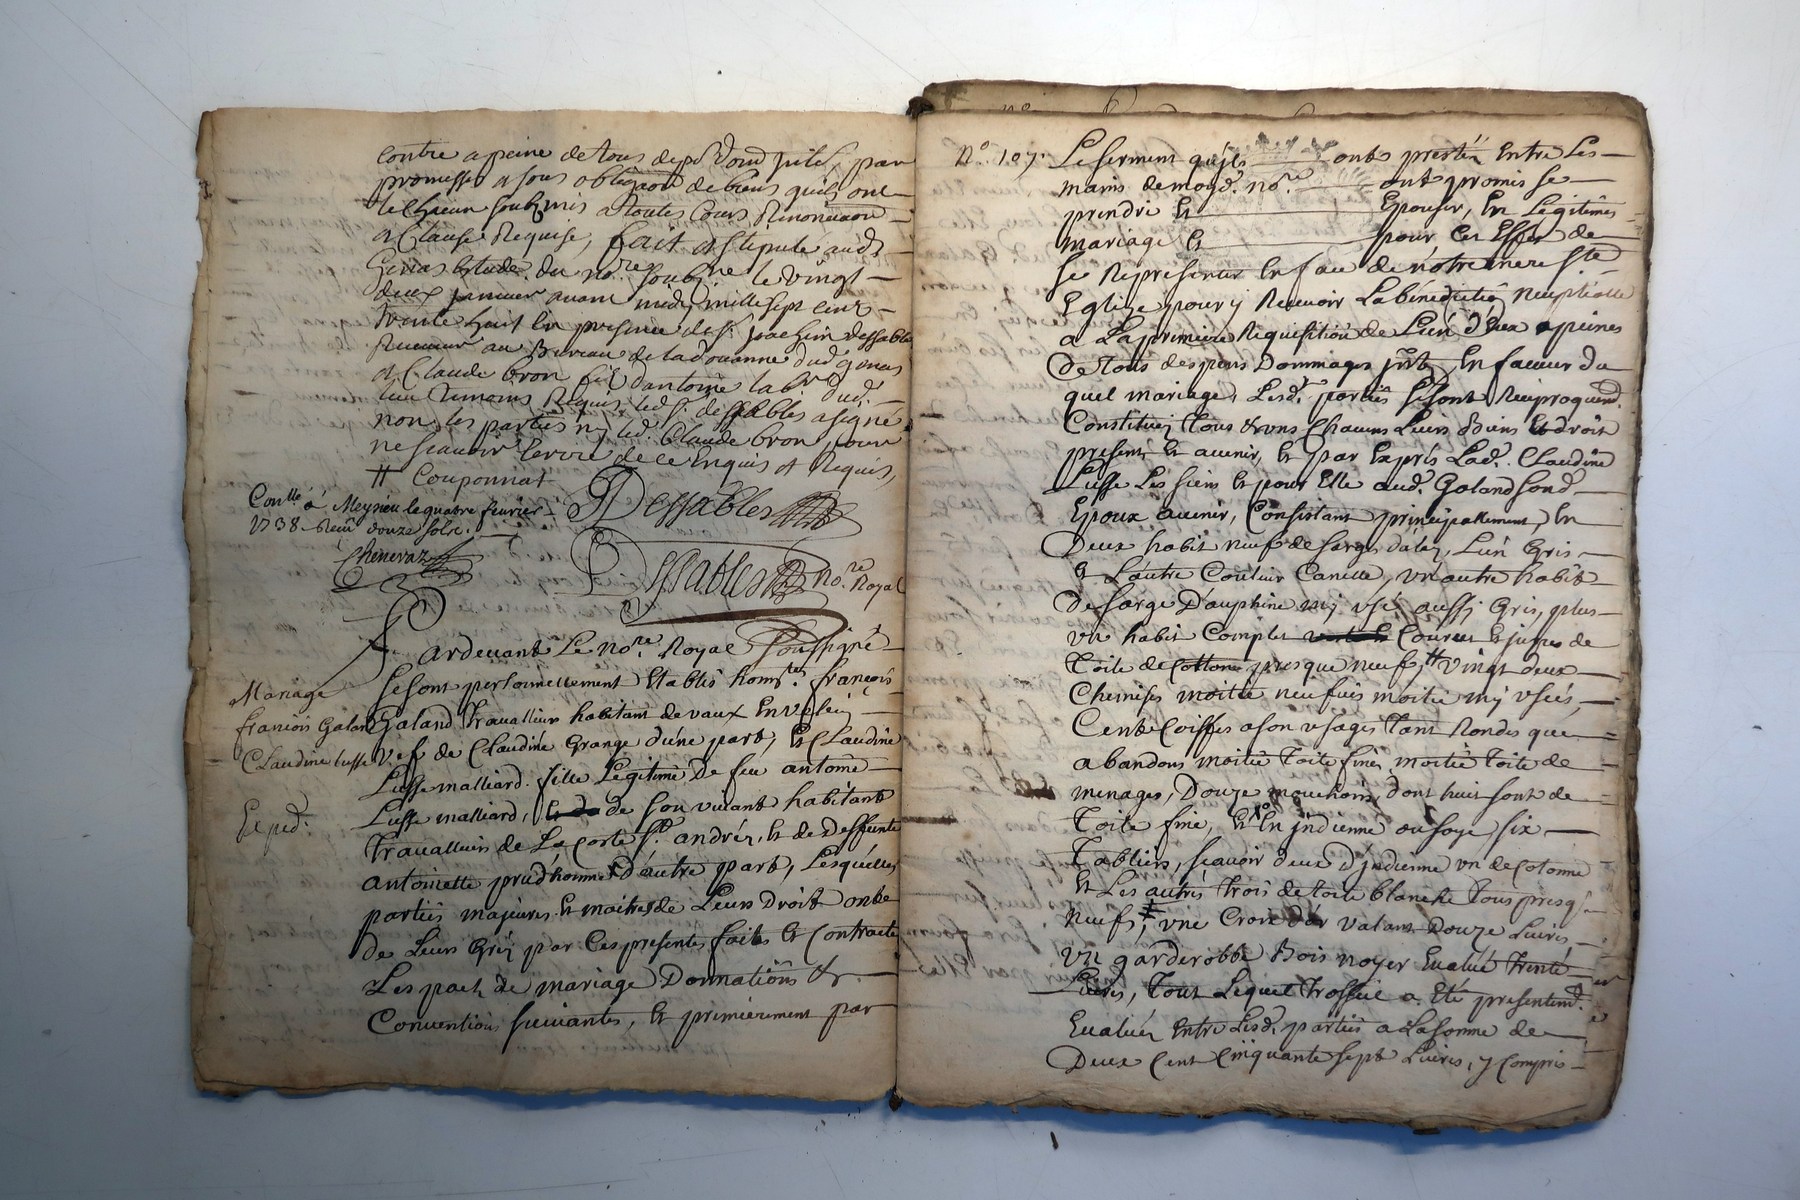 contre a peine de tous dep.s dom jntes, par
promesse a sous obligaon de biens quils ont
le chacun soubzmis a toutes Cours Renonciaon
a Clause Requise, fait et stipule aud.
Genas Estude du no.re soubz.ne le vingt
deux janvier avant midy mille sept cent
trente huit En presence de s.r joachim dessables
Receveur au Bureau de la doüanne dud genas
et Claude bron fils d'antoine lab.r dud.
lieu temoins Requis led s.r dessables a signé
non les parties ny led. Claude bron, pour
ne scavoir Ecrire de ce Enquis et Requis,
Couponnat
Dessables
Con.llé à Meysieu le quatre fevrier
1738. Reçu douze sols.
Chenevaz
Dessables no.re Royal
Pardevant Le no.re Royal Soussigné
Mariage
Se sont personnellement Etablis hom.te françois
françois Galand
Galand travallieur habitant de vaux Envelein
Claudine lusse
Vef de Claudine Grange d'une part, Et Claudine
Lusse malliard fille Legitime De feu antoine
Exped.
Lusse malliard, de son vivant habitant
travallieur de La Coste S.t andréz, et de Deffunte
antoinette prud'homme d'autre part, Lesquelles
parties majeures Et maitres de Leurs Droit onts
de Leurs Gréz par Ces presentes faits Et Contracté
Les pach de mariage Donnations &
Conventions suivantes, Et premierement par
N.o 107. Le serment quejls onts prestéz Entre Les
mains de moyd. no.re ont promis se
prendre Et Epouser, En Legitimes
mariage Et pour Cet Effet de
se Representer En face de notre mere S.te
Eglize pour y Recevoir La bénédiction Neuptialle
a La premiere Requisition de L'un d'Eux a peines
De tous despens Dommages jnts, En faveur du
quel mariage, Lesd. parties se sont Reciproquem.t
Constituéz tous & uns Chacuns Leurs Biens Et droit
present Et avenir, Et par Exprés Lad. Claudine
Lusse Les siens Et pour Elle aud. Galand sond
Epoux avenir, Consistant principallement, En
Deux habit neuf de sarge d'alez, L'un Gris
Et L'autre Couleur Canelle, un autre habit
De sarge Dauphine my usé aussy Gris, plus
un habit Complet Et jupes de
Toile de Cottonne presque neuf, vingt deux
Chemises moitie neufves moitie my usées,
Cent Coiffes a son usages tant Rondes que
abandons moitié toile fine, moitié toile de
menages, Douze mouchoirs, dont huit sont de
Toile fine, Et En jndienne ou soye, six
Tabliers, sçavoir deux D'jndienne un de Cotonne
Et Les autres trois de toile blanche tous presq'
Neufs, une Croix d'or valant Douze Livres,
un garderobbe Bois noyer Evalué trente
Livres, Tout Lequel trossel a Eté presentem.t
Evalué Entre Lesd. parties a La somme de
Deux Cent Cinquante sept Livres, y Compris